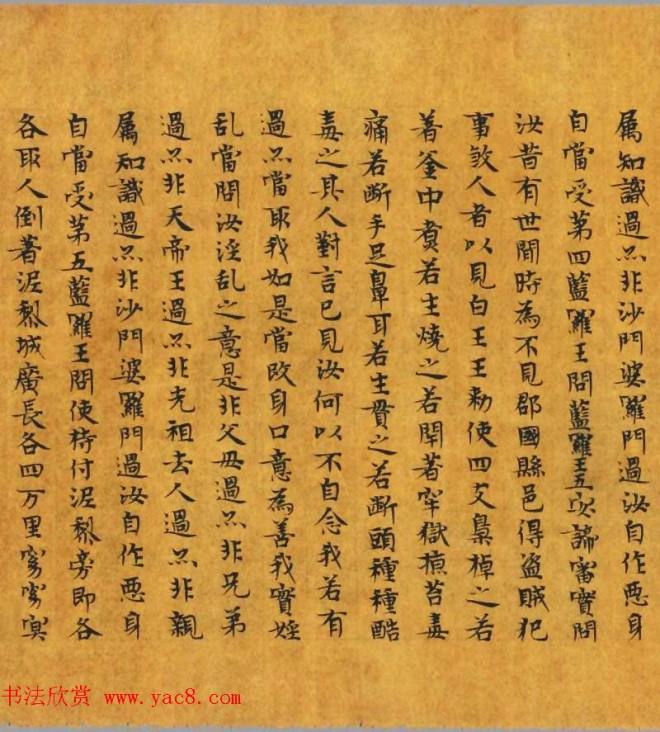 属知識過亦非沙門婆羅門過汝自作悪身
自當受第四藍羅王問藍羅王五實諦審實問
汝昔有世間時為不見郡國縣邑得盜賊犯
事煞人者以見白王王勑使四支梟棹之若
著釜中煑若生燒之若閉著牢獄掠苔毒
痛若断手足鼻耳若生貫之若断頭種種酷
毒之其人對言已見汝何以不自念我若有
過亦當取我如是當改身口意為善我實婬
乱當問汝淫乱之意是非父母過亦非兄弟
過亦非天帝王過亦非先祖去人過亦非親
属知識過亦非沙門婆羅門過汝自作悪身
自當受第五藍羅王問使持付泥梨旁即各
各取人倒著泥梨城廣長各四万里窈窈冥
书法欣赏 www.yac8.com